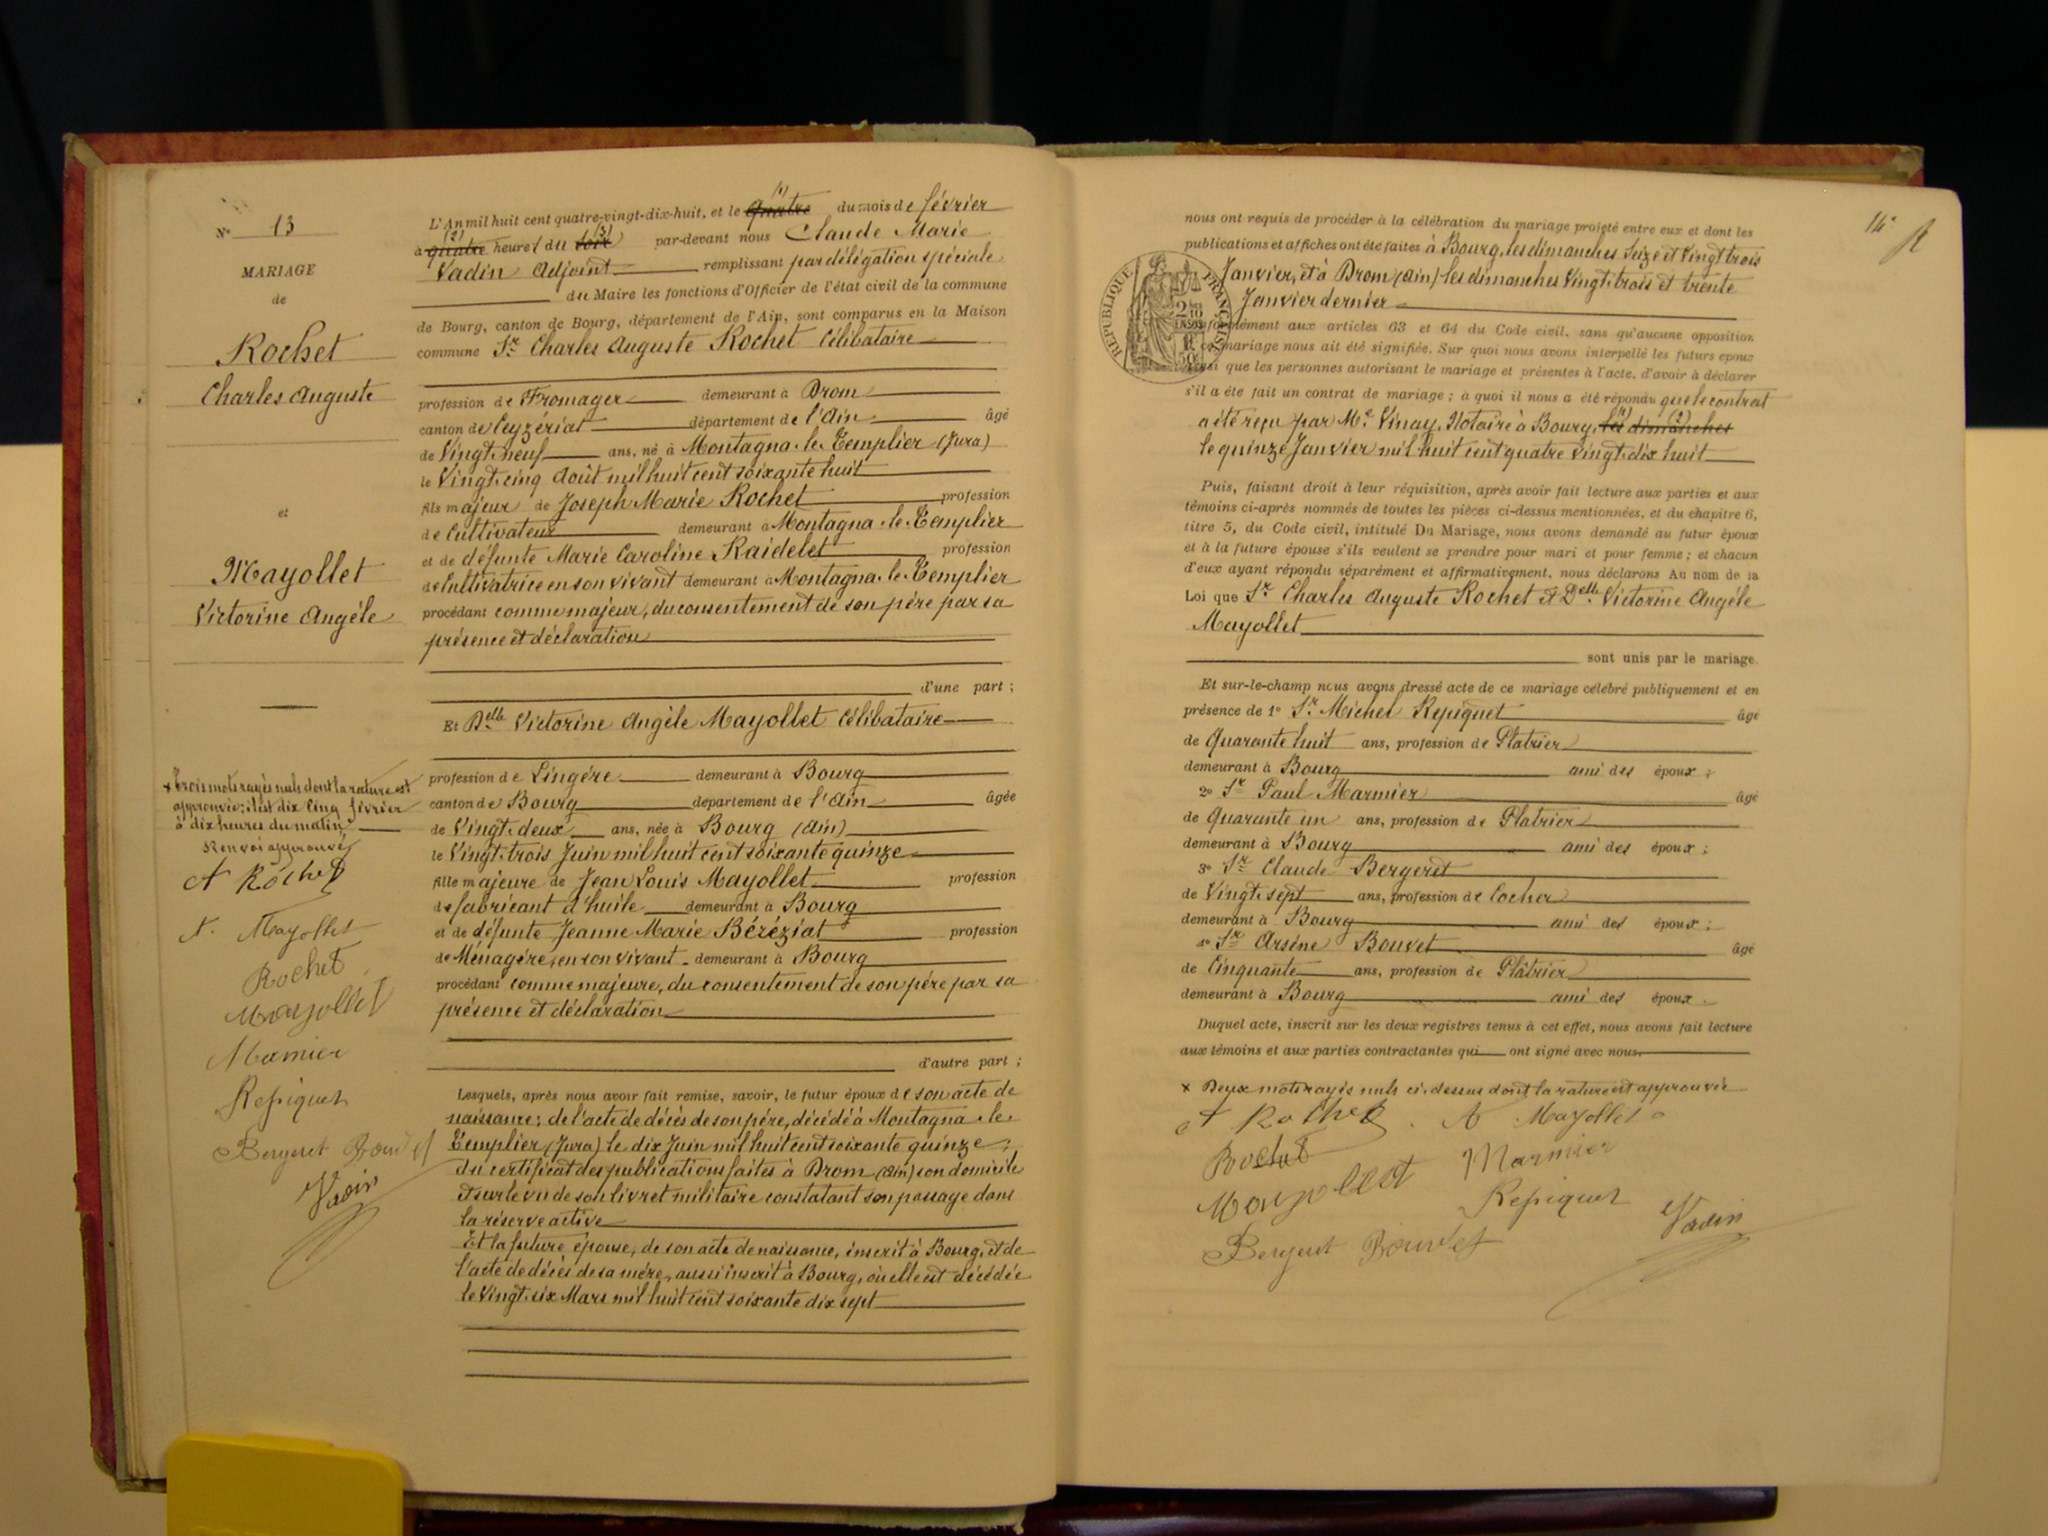 N° 13
MARIAGE
de
Rochet
Charles Auguste
et
Mayollet
Victorine Angèle
x trois mots rayés nuls dont la rature est
approuvée; il est dit cinq février
à dix heures du matin
Renvoi approuvé
A Rochet
A. Mayollet
Rochet
Mayollet
Marnier
Repiquet
Bergeret Bouvet
Vadin
L'An mil huit cent quatre-vingt-dix-huit, et le quatre (1) du mois de février
à quatre (2) heures du soir (3) par-devant nous Claude Marie
Vadin Adjoint remplissant par délégation spéciale
du Maire les fonctions d'Officier de l'état civil de la commune
de Bourg, canton de Bourg, département de l'Ain, sont comparus en la Maison
commune Sr Charles Auguste Rochet Célibataire
profession de Fromager demeurant à Drom
canton de Ceyzériat département de l'Ain âgé
de Vingt-neuf ans, né à Montagna-le-Templier (Jura)
le Vingt-cinq Août mil huit cent soixante huit
fils majeur de Joseph Marie Rochet profession
de Cultivateur demeurant à Montagna-le-Templier
et de défunte Marie Caroline Raidelet profession
de Cultivatrice en son vivant demeurant à Montagna-le-Templier
procédant comme majeur, du consentement de son père par sa
présence et déclaration
d'une part ;
Et Delle Victorine Angèle Mayollet Célibataire
profession de Lingère demeurant à Bourg
canton de Bourg département de l'Ain âgée
de Vingt-deux ans, née à Bourg (Ain)
le Vingt-trois Juin mil huit cent soixante quinze
fille majeure de Jean Louis Mayollet profession
de fabricant d'huile demeurant à Bourg
et de défunte Jeanne Marie Béréziat profession
de Ménagère, en son vivant demeurant à Bourg
procédant comme majeure, du consentement de son père par sa
présence et déclaration
d'autre part ;
Lesquels, après nous avoir fait remise, savoir, le futur époux de son acte de
naissance; de l'acte de décès de son père, décédé à Montagna-le-
Templier (Jura) le dix Juin mil huit cent soixante quinze;
du certificat des publications faites à Drom (Ain) son domicile
et sur le vu de son livret militaire constatant son passage dans
la réserve active
Et la future épouse, de son acte de naissance, inscrit à Bourg, et de
l'acte de décès de sa mère, aussi inscrit à Bourg, où elle est décédée
le Vingt-six Mars mil huit cent soixante dix sept
14e
nous ont requis de procéder à la célébration du mariage projeté entre eux et dont les
publications et affiches ont été faites à Bourg, les dimanches Seize et Vingt trois
Janvier, et à Drom (Ain) les dimanches Vingt-trois et trente
Janvier dernier
RÉPUBLIQUE FRANÇAISE
conformément aux articles 63 et 64 du Code civil, sans qu'aucune opposition
à ce mariage nous ait été signifiée. Sur quoi nous avons interpellé les futurs époux
ainsi que les personnes autorisant le mariage et présentes à l'acte, d'avoir à déclarer
s'il a été fait un contrat de mariage ; à quoi il nous a été répondu que le contrat
a été reçu par Me Vinay, Notaire à Bourg, les (1) dimanches (2)
le quinze Janvier mil huit cent quatre Vingt-dix huit
Puis, faisant droit à leur réquisition, après avoir fait lecture aux parties et aux
témoins ci-après nommés de toutes les pièces ci-dessus mentionnées, et du chapitre 6,
titre 5, du Code civil, intitulé Du Mariage, nous avons demandé au futur époux
et à la future épouse s'ils veulent se prendre pour mari et pour femme ; et chacun
d'eux ayant répondu séparément et affirmativement, nous déclarons Au nom de la
Loi que Sr Charles Auguste Rochet et Delle Victorine Angèle
Mayollet
sont unis par le mariage.
Et sur-le-champ nous avons dressé acte de ce mariage célébré publiquement et en
présence de 1° Sr Michel Repiquet âgé
de Quarante huit ans, profession de Plâtrier
demeurant à Bourg ami des époux ;
2° Sr Paul Marmier âgé
de Quarante un ans, profession de Plâtrier
demeurant à Bourg ami des époux ;
3° Sr Claude Bergeret
de Vingt-sept ans, profession de Cocher
demeurant à Bourg ami des époux ;
4° Sr Arsène Bouvet âgé
de Cinquante ans, profession de Plâtrier
demeurant à Bourg ami des époux.
Duquel acte, inscrit sur les deux registres tenus à cet effet, nous avons fait lecture
aux témoins et aux parties contractantes qui ont signé avec nous.
x Deux mots rayés nuls ci-dessus dont la rature est approuvée
A Rochet A Mayollet
Rochet Marmier
Mayollet Repiquet
Vadin
Bergeret Bouvet